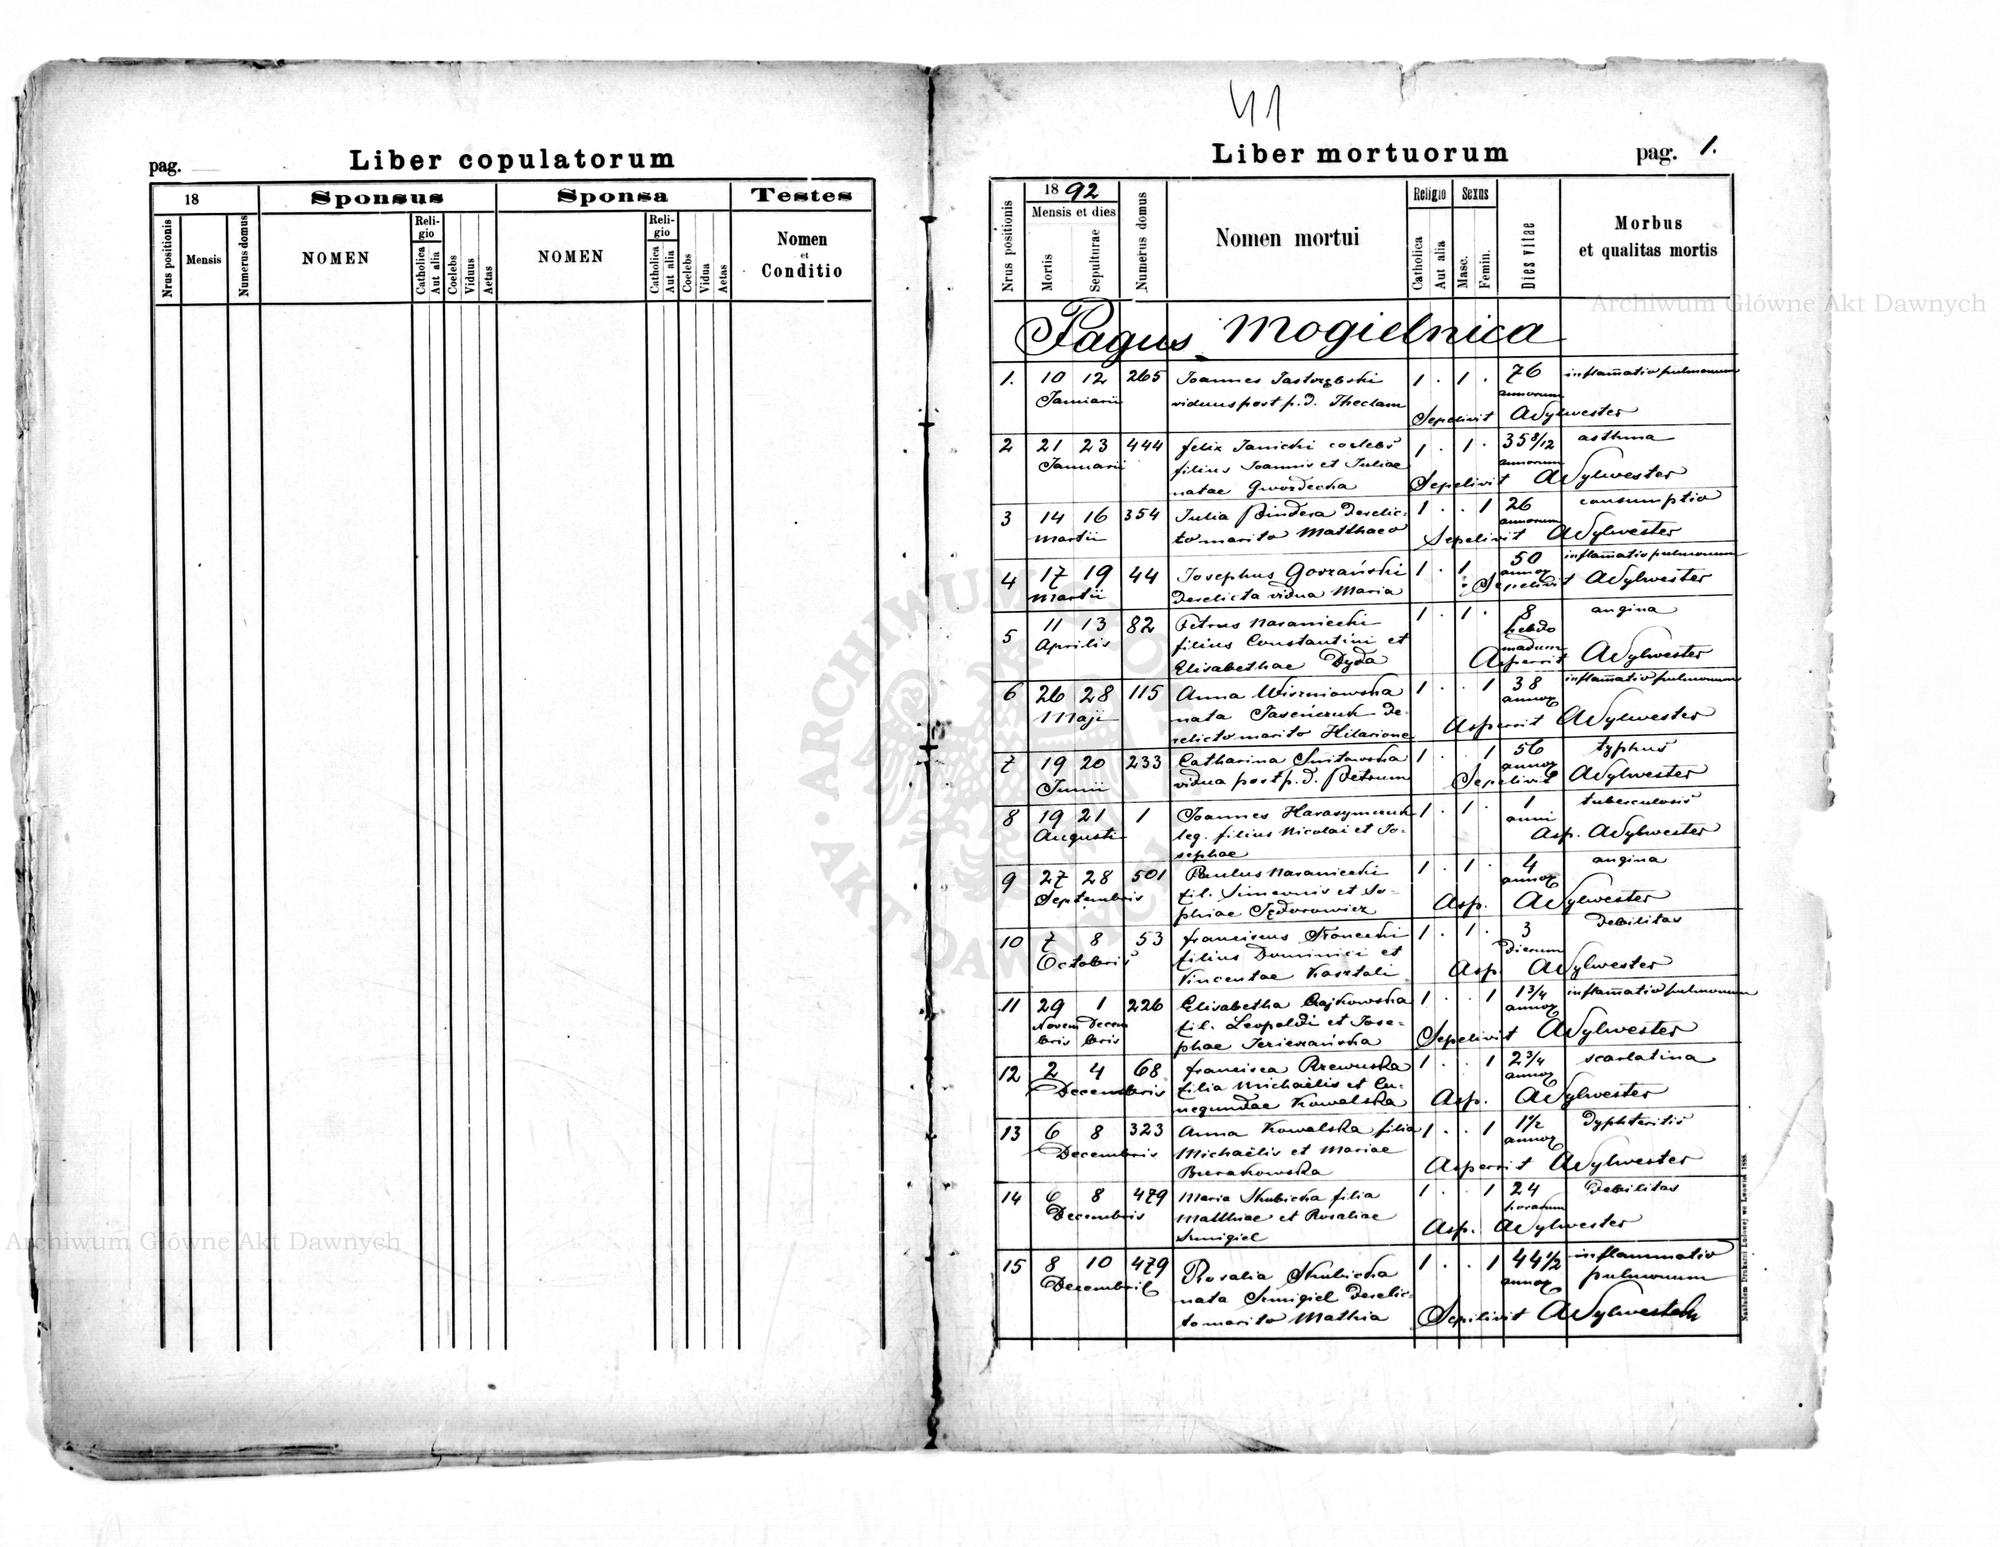 41
pag.
Liber copulatorum
18
Sponsus
Sponsa
Testes
Nrus positionis
Mensis
Numerus domus
NOMEN
Religio
Catholica
Aut alia
Coelebs
Viduus
Aetas
NOMEN
Religio
Catholica
Aut alia
Coelebs
Vidua
Aetas
Nomen
et
Conditio
Liber mortuorum
pag. 1.
Nrus positionis
1892
Mensis et dies
Mortis
Sepulturae
Numerus domus
Nomen mortui
Religio
Catholica
Aut alia
Sexus
Masc.
Femin.
Dies vitae
Morbus
et qualitas mortis
Pagus Mogielnica
1. 10 12 265 Joannes Jastrzębski 1 . 1 . 76 inflam̅atio pulmonum
Januarii viduus post p. d. Theclam annorum
Sepelivit ASylwester
2 21 23 444 Felix Janicki coelebs 1 . 1 . 35 8/12 asthma
Januarii filius Joannis et Juliae annorum
natae Gwozdecka Sepelivit ASylwester
3 14 16 354 Julia Bindera derelic- 1 . . 1 26 consumptio
Martii to marito Matthaeo annorum Sepelivit ASylwester
4 17 19 44 Josephus Gorzański 1 . 1 . 50 inflam̅atio pulmonum
Martii derelicta vidua Maria Sepelivit ASylwester
5 11 13 82 Petrus Naraniecki 1 . 1 . 8 angina
Aprilis filius Constantini et hebdo
Elisabethae Dyda madum Asperrit ASylwester
6 26 28 115 Anna Wiszniowska 1 . . 1 38 inflam̅atio pulmonum
Maji nata Jasieńczuk de-
relicto marito Hilarione Asperrit ASylwester
7 19 20 233 Catharina Snitowska 1 . . 1 56 typhus
Junii vidua post p. d. Petrum Sepelivit ASylwester
8 19 21 1 Joannes Harasymczuk 1 . 1 . 1 tuberculosis
Augusti leg. filius Nicolai et Jo- anni Asp. ASylwester
sephae
9 27 28 501 Paulus Naraniecki 1 . 1 . 4 angina
Septembris fil. Simeonis et So-
phiae Fędorowicz Asp. ASylwester
10 7 8 53 Franciscus 1 . 1 . 3 debilitas
Octobris filius Dominici et dierum
Vincentae Kasztali Asp. ASylwester
11 29 1 226 Elisabetha Czajkowska 1 . . 1 1 3/4 inflam̅atio pulmonum
Novem Decem fil. Leopoldi et Jose-
bris bris phae Jezierzańska Sepelivit ASylwester
12 2 4 68 Francisca Rzewuska 1 . . 1 2 3/4 scarlatina
Decembris filia Michaëlis et Cu-
negundae Kowalska Asp. ASylwester
13 6 8 323 Anna Kowalska filia 1 . . 1 1 1/2 dyphteritis
Decembris Michaëlis et Mariae
Burakowska Asperrit ASylwester
14 6 8 479 Maria Skubicka filia 1 . . 1 24 debilitas
Decembris Matthiae et Rosaliae horarum
Smigiel Asp. ASylwester
15 8 10 479 Rosalia Skubicka 1 . . 1 44 1/2 inflammatio
Decembris nata Smigiel derelic- pulmonum
to marito Mathia Sepilivit ASylwester
Nakładem Drukarni Ludowej we Lwowie 1888.
Archiwum Główne Akt Dawnych
Archiwum Główne Akt Dawnych
ARCHIWUM GŁÓWNE AKT DAWNYCH